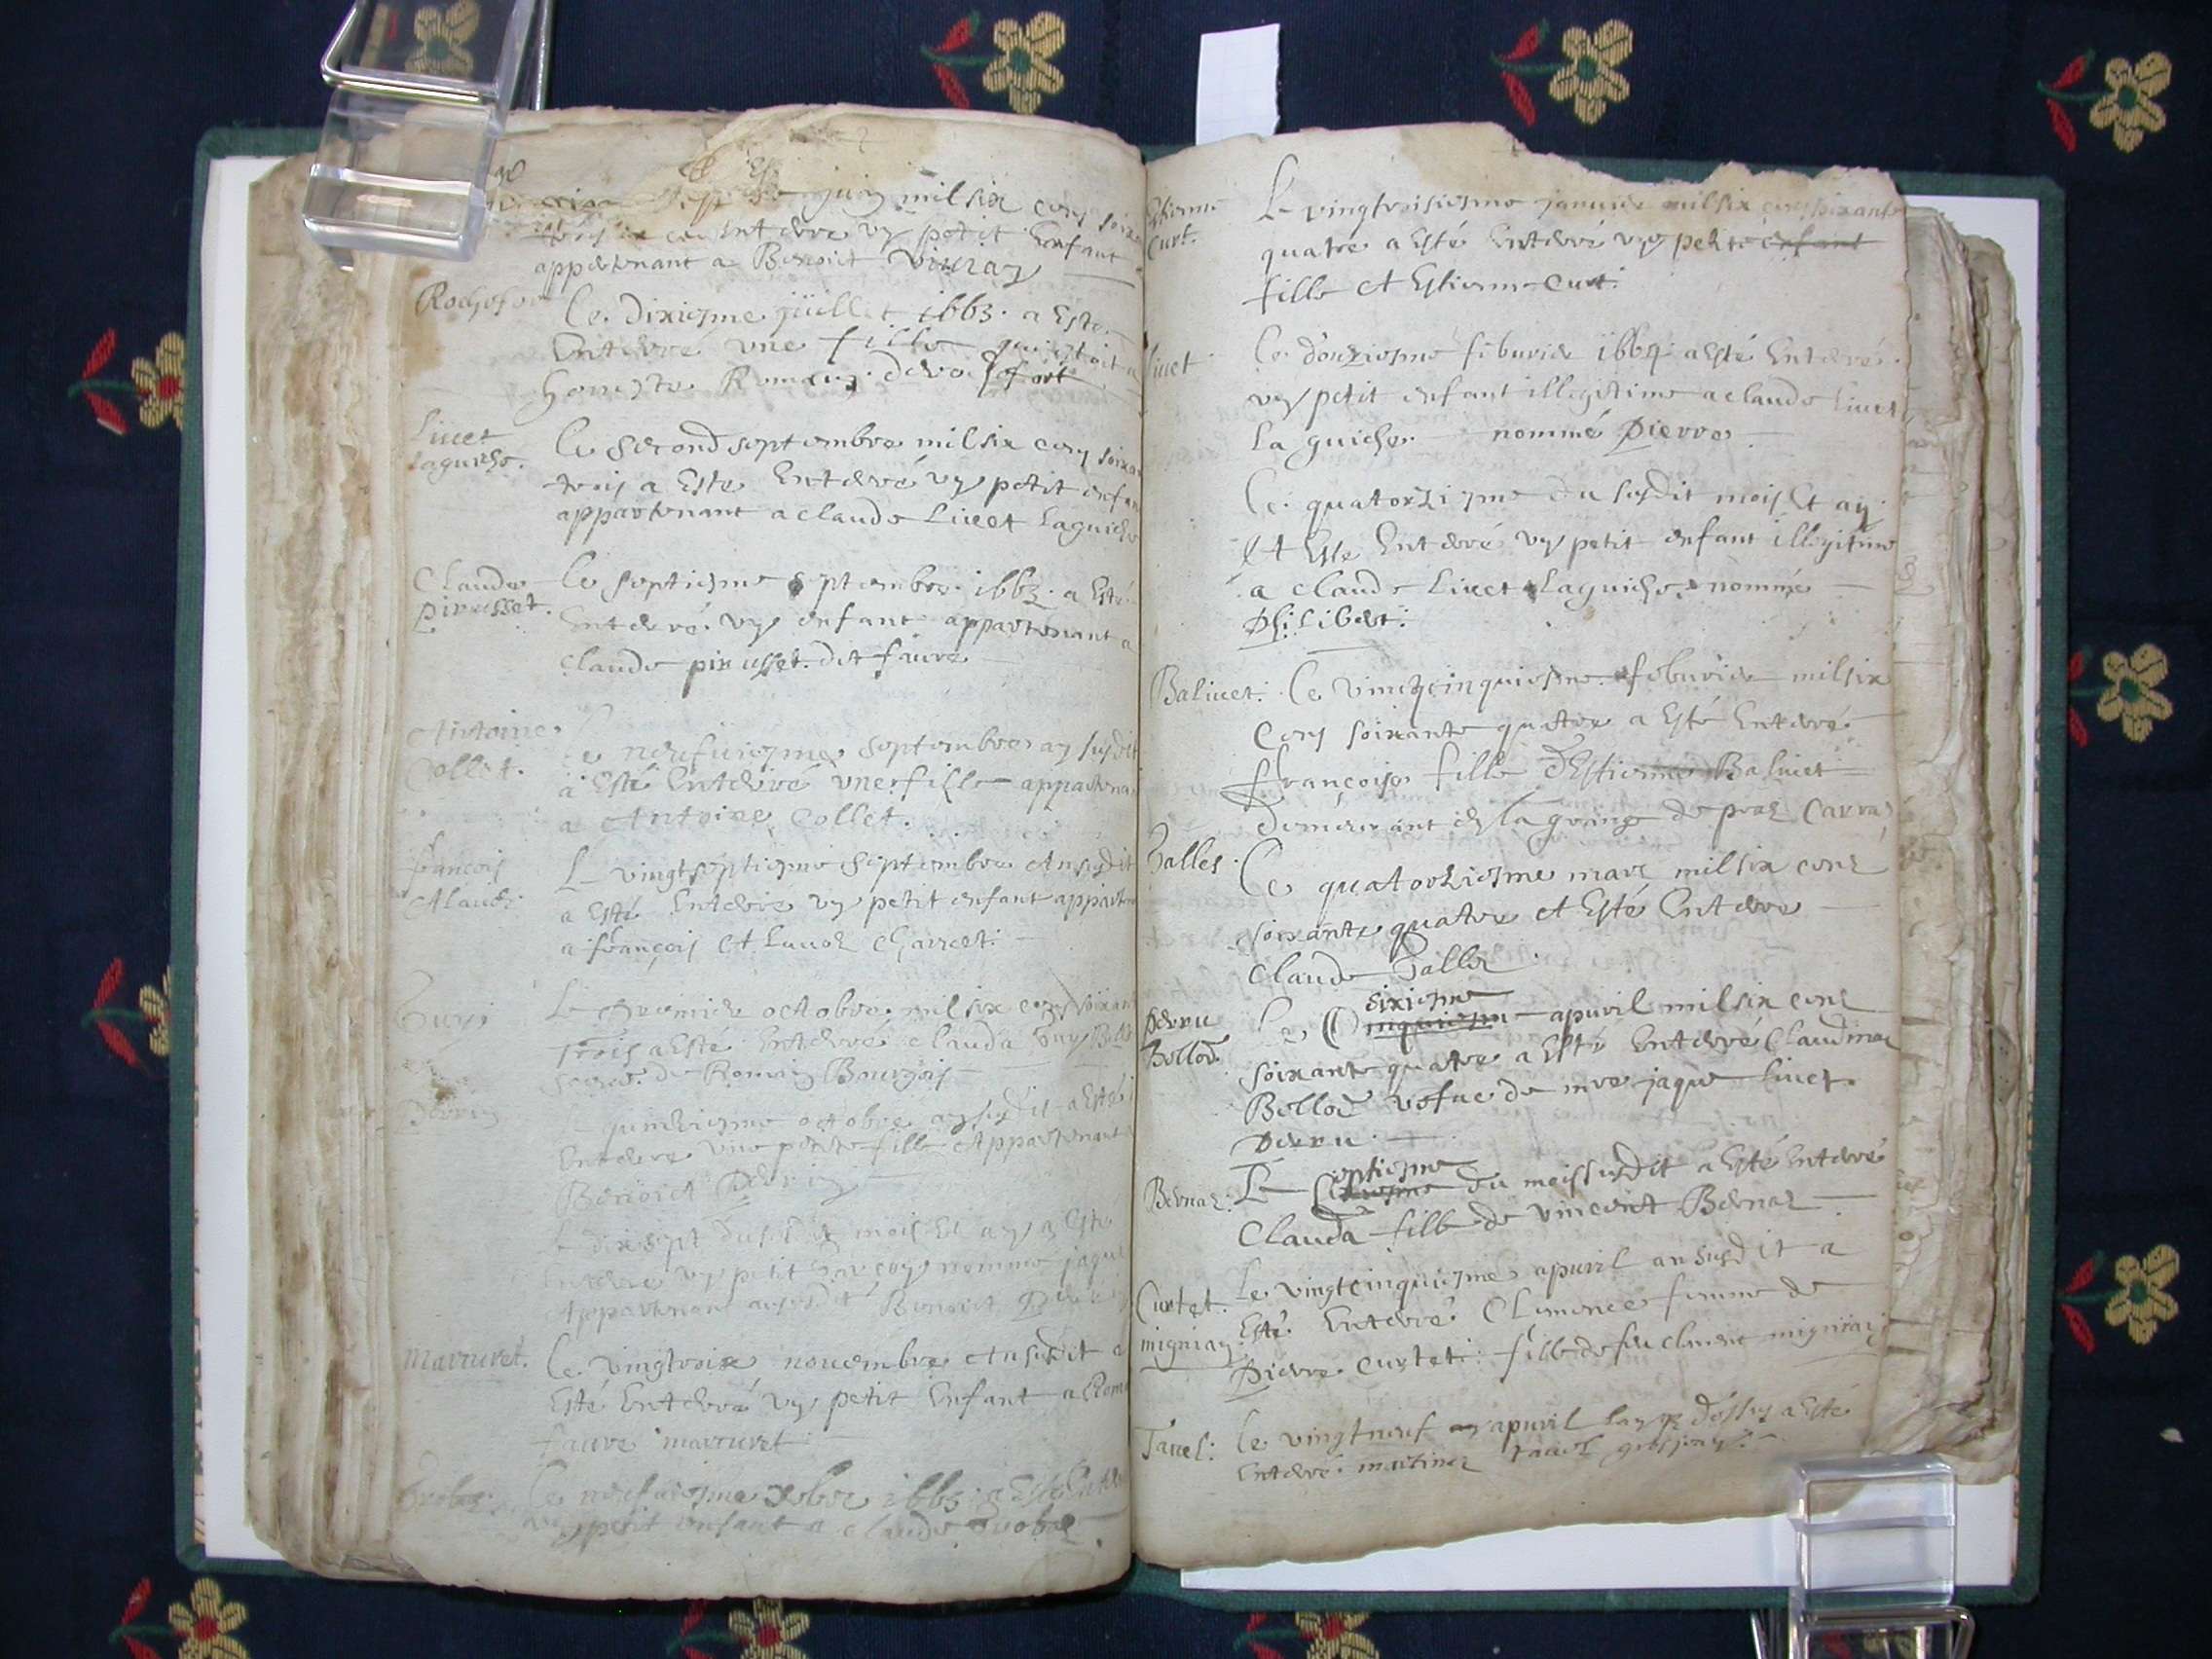 juin mil six cens soix
trois a esté Enterré vn petit Enfant
appartenant a Benoict
Rochefor
Le dixiesme juillet 1663. a Esté
Enterré vne fille qui estoit a
honeste Romain de rochefort
Liuet
laguiche.
Le second septembre mil six cens soixa
trois a Esté Enterré vn petit enfan
appartenant a claude Liuet Laguiche
Claude
Pirusset.
Le septiesme septembre 1663. a Esté
Enterré vn enfant appartenant a
claude pirusset dit faure
Antoine
Collet.
Le neufuiesme septembre an susdit
a Esté Enterré vne fille appartena
a Antoine Collet.
françois
Le vingtseptiesme septembre An susdit
a Esté Enterré vn petit enfant apparte
a françois
Le premier octobre mil six cens soixan
Trois a Esté Enterré clauda
de Romain Bourgois
Perrin
Le quinziesme octobre an susdit a Esté
Enterré vne petite fille Appartenant
Benoict Perrin
Le dixsept dususdit mois Et an a Esté
Enterré vn petit garçon nommé jaque
Appartenant aususdit Benoict
Marruret.
Le vingtroix nouembre An susdit a
Esté Enterré vn petit Enfant a Rom
faure marruret
Le neufuiesme xbre 1663 a Esté Enter
vn petit enfant a claude
Estienne
Curt.
Le vingtroisiesme januier mil six cens soixante
quatre a Esté Enterré vne petite enfant
fille et Estienne Curt.
Liuet
Le douziesme feburier 1664 a Esté Enterré
vn petit enfant illegitime a claude Liuet
La guiche. nommé Pierre.
Le quatorziesme du susdit mois Et an
Et Esté Enterré vn petit enfant illegitime
a claude Liuet Laguiche nommé
Philibert.
Baliuet.
Le vintzcinquiesme feburier mil six
Cens soixante quatre a Esté Enterré
françoise fille d'Estienne Baliuet
Demeurant en la grange de praz Carraz
Le quatorziesme mars mil six cens
soixante quatre et Esté Enterré
Claude
Perru
Bollod.
sixiesme
Le Cinquiesme apuril mil six cens
soixante quatre a Esté Enterré Claudine
Bollod vefue de mre jaque Liuet
Perru.
Bernaz.
septiesme
Le du mois susdit a Esté Enterré
Clauda fille de vincent Bernaz
Curtet.
migniay
Le vingtcinquiesme apuril an susdit a
Esté Enterré Clemence femme de
Pierre Curtet. fille de feu clement migniay
Tauel.
Le vingtneuf apuril lan dessus a Esté
Enterré martine tauel